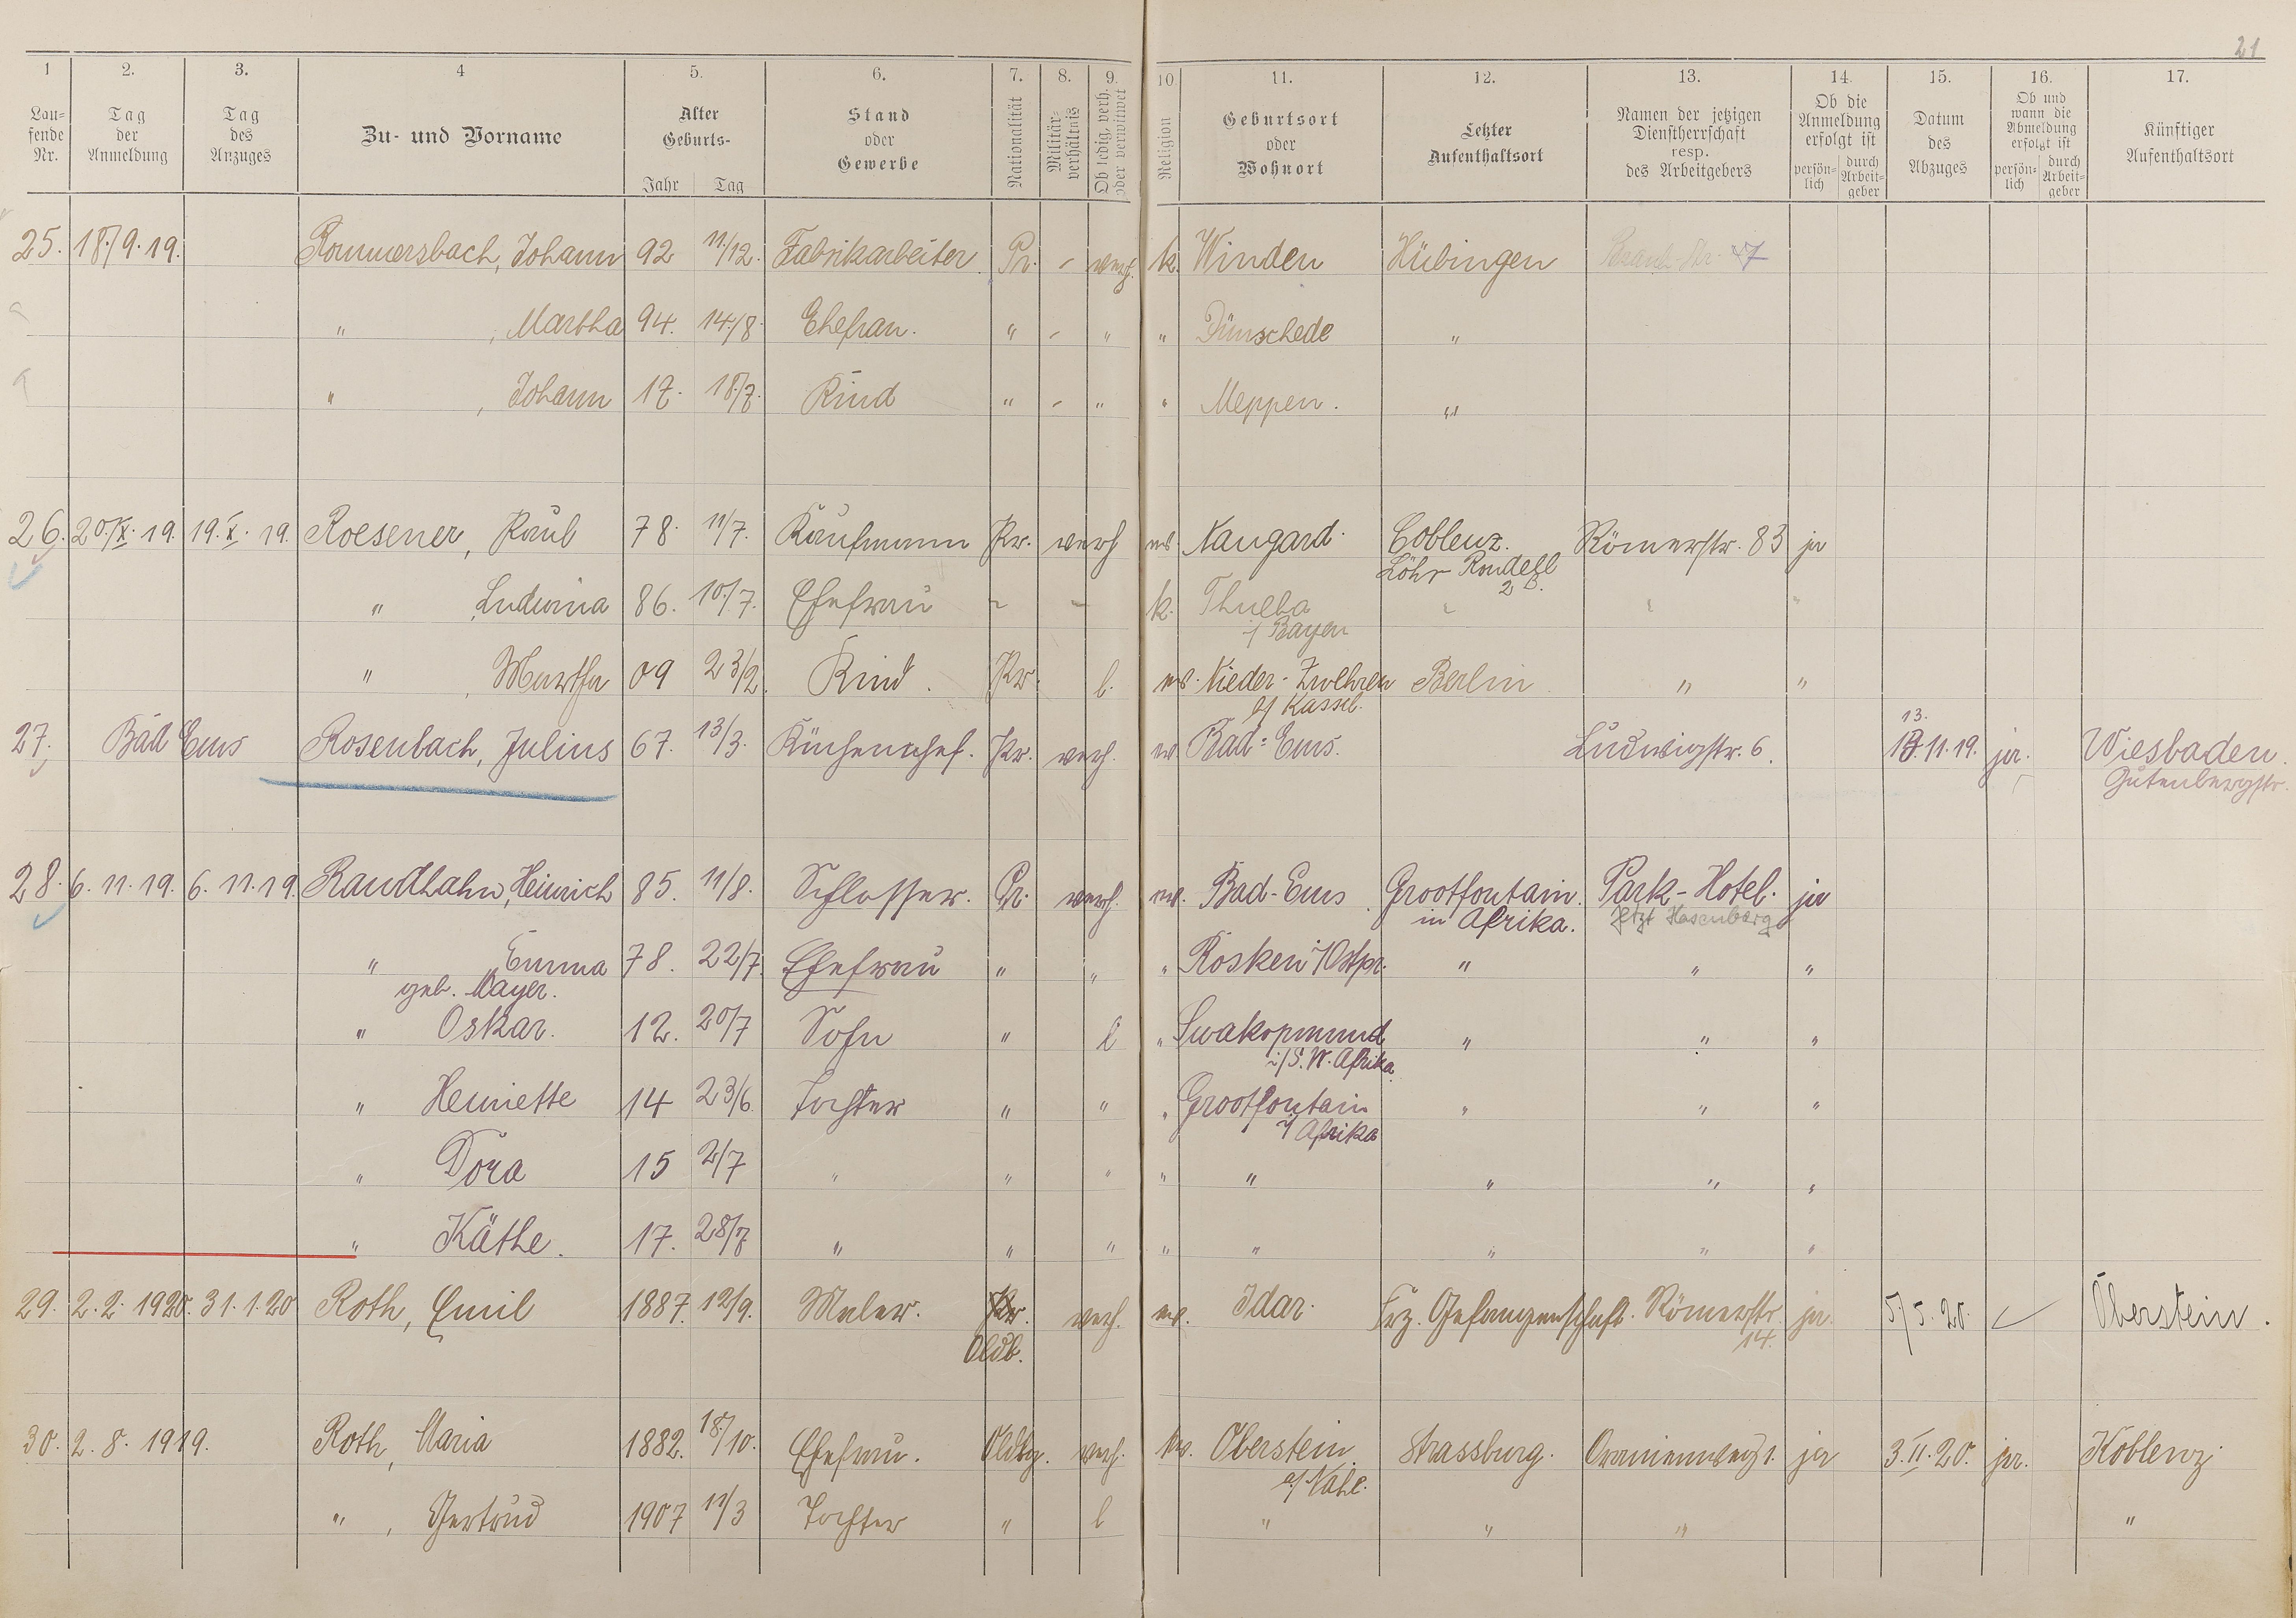 21
1 2. 3. 4 5. 6. 7. 8. 9. 10 11. 12. 13. 14. 15. 16. 17.
Lau- fende Nr. Tag der Anmeldung Tag des Anzuges Zu- und Vorname Alter Geburts- Jahr Tag Stand oder Gewerbe Nationalität Militär- verhältnis Ob ledig, verh. oder verwittwet Religion Geburtsort oder Wohnort Letzter Aufenthaltsort Namen der jetzigen Dienstherrschaft resp. des Arbeitgebers Ob die Anmeldung erfolgt ist persön- lich durch Arbeit- geber Datum des Abzuges Ob und wann die Abmeldung erfolgt ist persön- lich durch Arbeit- geber Künftiger Aufenthaltsort
25. 18./9.19. Rommersbach, Johann 92 11./12. Fabrikarbeiter Pr. - verh. k. Winden Hübingen 47
" , Martha 94. 14./8. Ehefrau. " - " " Dünschede "
" , Johann 17. 18./7. Kind " - " " Meppen. "
26. 20./X.19. 19.X.19. Roesener, Paul 78. 11/7. Kaufmann Pr. verh ev. Naugard. Coblenz. Römerstr. 83 ja
Löhr Rondell
2 B.
" , Ludwina 86. 10./7. Ehefrau " " k. Thulba " " "
i/ Bayern
" , Martha 09 23/2. Kind. Pr. l. ev. Nieder-Zwehren Berlin " "
b/ Kassel.
27. Bad Ems Rosenbach, Julius 67. 13/3. Küchenchef. Pr. verh. ev. Bad-Ems. Ludwigstr. 6. 13. 11.19. ja. Wiesbaden.
Gutenbergstr.
28. 6.11.19. 6.11.19. Randhahn, Heinrich 85. 11/8. Schlosser. Pr. verh. ev. Bad-Ems Grootfontain. Park-Hotel. ja
in Afrika. jetzt Hasenberg
" Emma 78. 22/7. Ehefrau " " " Rosken i/Ostpr. " " "
geb. Mayer.
" Oskar. 12. 20/7 Sohn " l " Swakopmund " " "
i/S.W. Afrika.
" Henriette 14 23/6. Tochter " " " Grootfontain " " "
i/ Afrika
" Dora 15 2/7 " " " " " " " "
" Käthe. 17. 28/7 " " " " " " " "
29. 2.2.1920. 31.1.20 Roth, Emil 1887. 12/9. Maler. Pr. verh. ev. Idar. Frz. Gefangenschaft. Römerstr. ja 5/5.20. Oberstein.
Oldb. 14.
30. 2.8.1919. Roth, Maria 1882. 18/10. Ehefrau. Oldbg. verh. ev. Oberstein Strassburg. Oranienweg 1. ja 3.II.20. ja. Koblenz.
a/ Nahe.
" , Gertrud 1907 11/3 Tochter " l " " " "